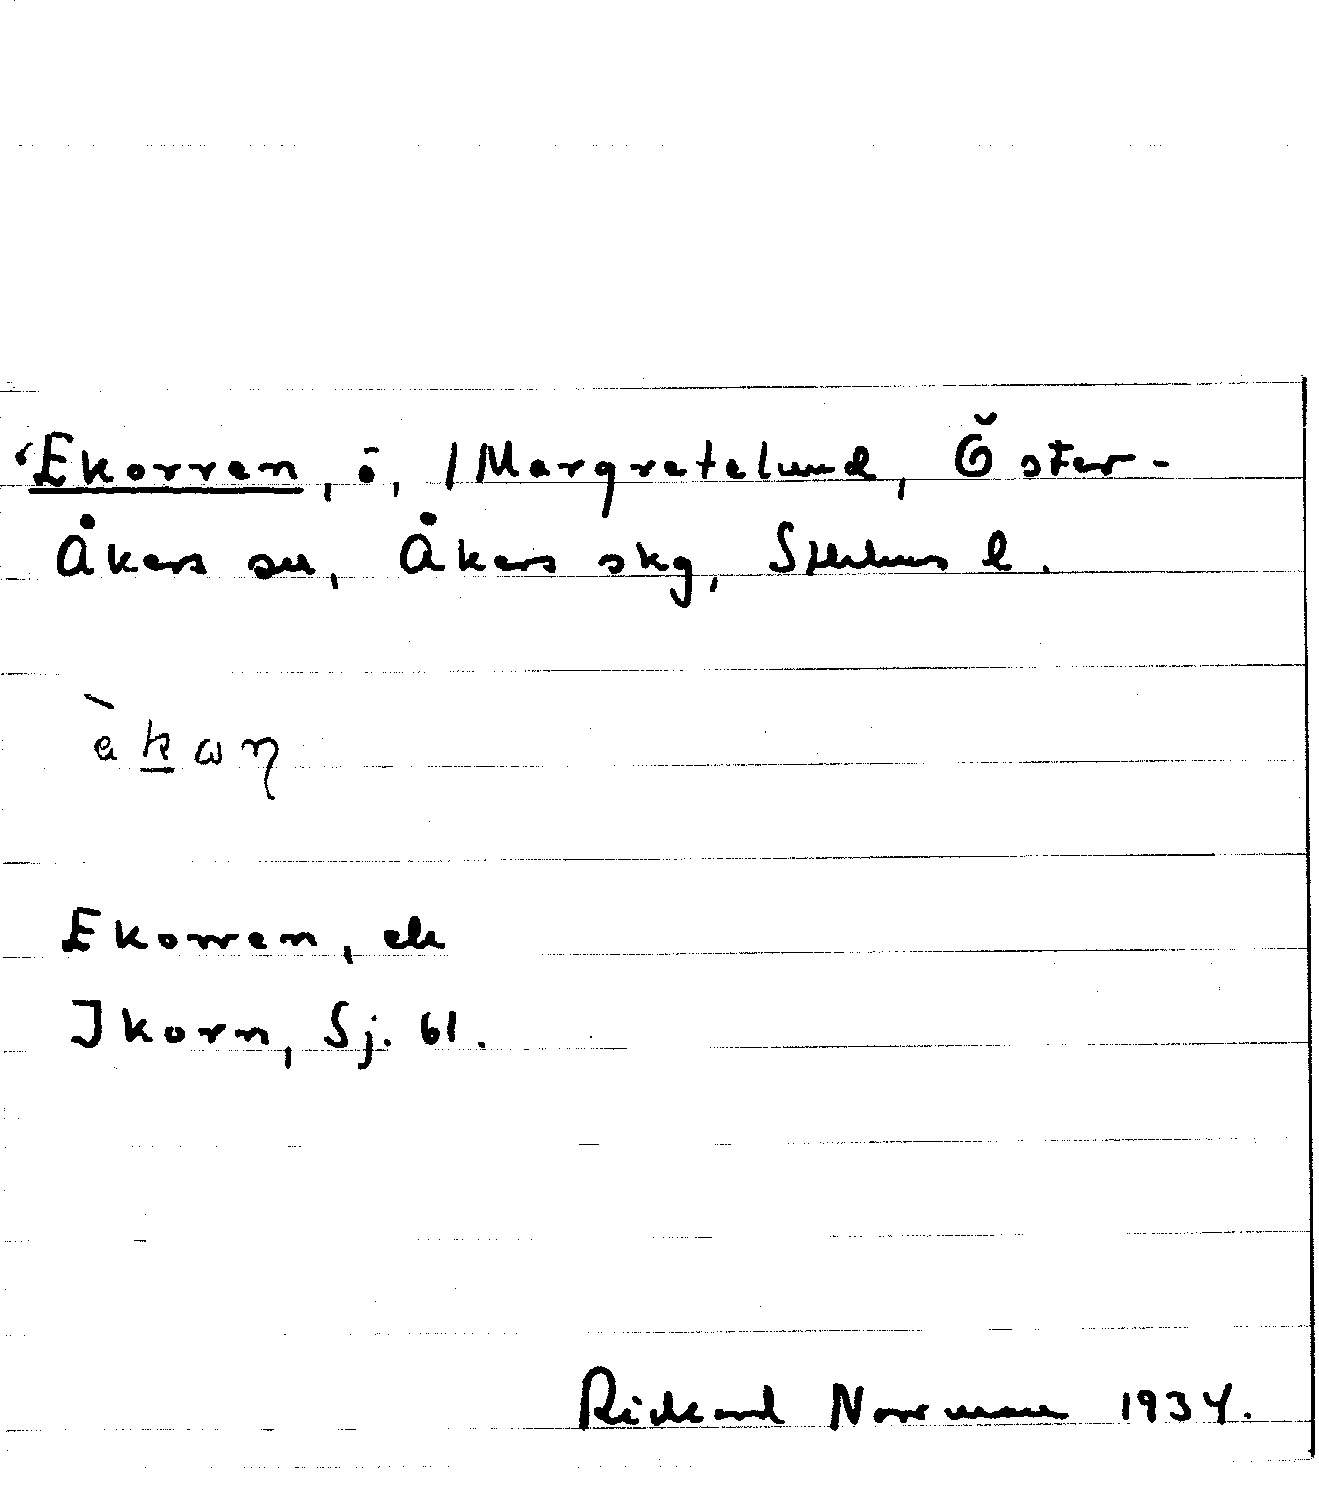 Ekorren, ö, / Margretelund, Öster-
Åkers sn, Åkers skg, Sthlms l.
èkωη
Ekorren, ek
Ikorn, Sj. 61.
Rickard 1934.